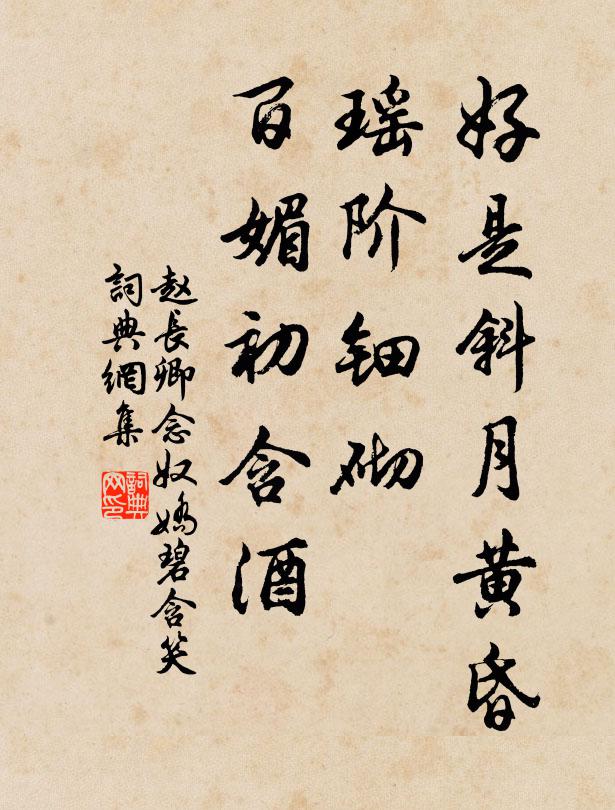 好是斜月黄昏
瑶阶钿砌
百媚初含酒
赵長卿念奴嬌碧含笑
詞典網集
詞典网印